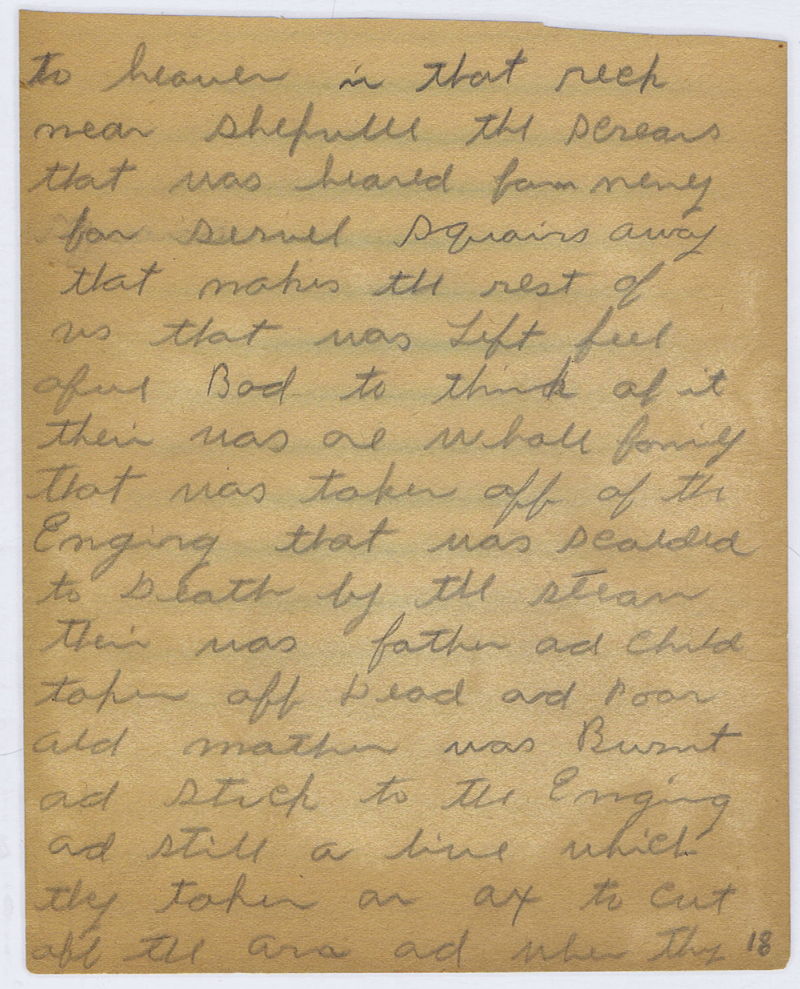 to heaven in that reck
near Shepvill the Screars
that was heared fam neney
for servel Squairs away
that makes the rest of
us that was Left feel
afull Bad to think of it
their was one whole family
that was taken off of the
Enging that was scalded
to Death by the stean
their was father ad child
taken off Dead and Poor
old mother was Burnt
ad Stuck to the Enging
ad still a live which
thy taken an ax to cut
off the arn ad when thy 18